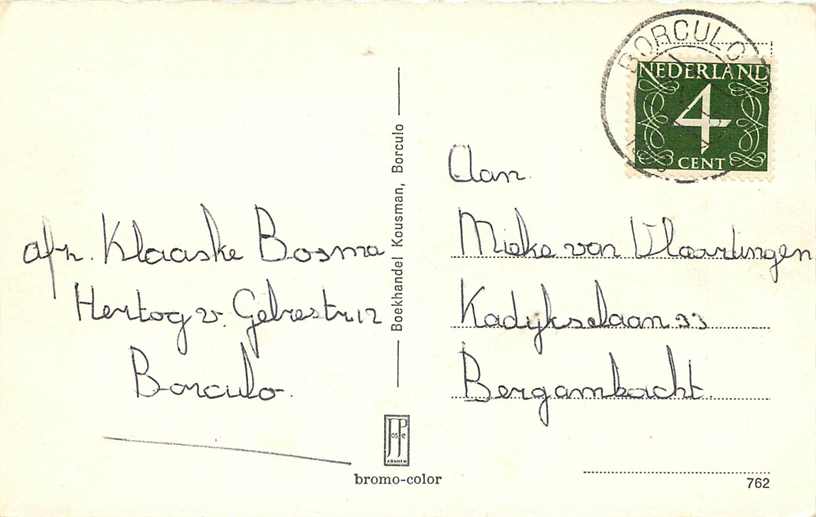 afz. Klaaske Bosma
Hertog v. Gelrestr 12
Borculo.
Boekhandel Kousman, Borculo
JosPé
ARNHEM
bromo-color
BORCULO
NEDERLAND
4
CENT
Aan
Mieke van Vlaardingen
Kadijkselaan 33
Bergambacht.
762